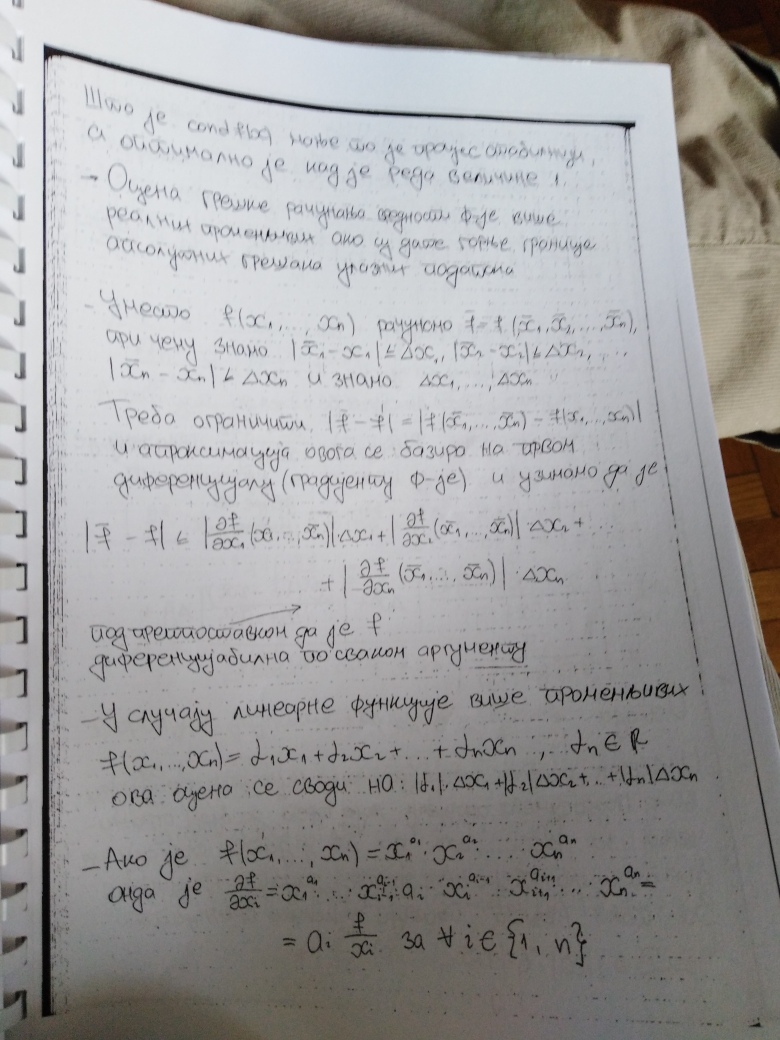 Што је cond f(x) мање то је процес стабилнији,
а оптимално је кад је реда величине 1.
→ Оцена грешке рачунања вредности ф-је више
реалних променљивих ако су дате горње границе
апсолутних грешака улазних података
- Уместо f(x₁,..., xₙ) рачунамо f̄ = f(x̄₁, x̄₂,..., x̄ₙ),
при чему знамо |x̄₁-x₁| ≤ Δx₁, |x̄₂-x₂| ≤ Δx₂, ...
|x̄ₙ-xₙ| ≤ Δxₙ и знамо Δx₁,..., Δxₙ
Треба ограничити |f̄-f| = |f(x̄₁,..., x̄ₙ) - f(x₁,..., xₙ)|
и апроксимација овога се базира на првом
диференцијалу (градијенту ф-је) и узимамо да је
|f̄ - f| ≤ |∂f/∂x₁ (x̄₁,..., x̄ₙ)| · Δx₁ + |∂f/∂x₂ (x̄₁,..., x̄ₙ)| · Δx₂ + ...
+ |∂f/∂xₙ (x̄₁,..., x̄ₙ)| · Δxₙ
под претпоставком да је f
диференцијабилна по сваком аргументу
- У случају линеарне функције више променљивих
f(x₁,...,xₙ) = α₁x₁ + α₂x₂ + ... + αₙxₙ , αₙ ∈ R
ова оцена се своди на: |α₁|·Δx₁ + |α₂|Δx₂ + ... + |αₙ|Δxₙ
- Ако је f(x₁,..., xₙ) = x₁^a₁ · x₂^a₂ · ... xₙ^aₙ
онда је ∂f/∂xᵢ = x₁^a₁ ... xᵢ₋₁^aᵢ₋₁ aᵢ · xᵢ^(aᵢ-1) xᵢ₊₁^aᵢ₊₁ ... xₙ^aₙ =
= aᵢ f/xᵢ за ∀ i ∈ {1, n}